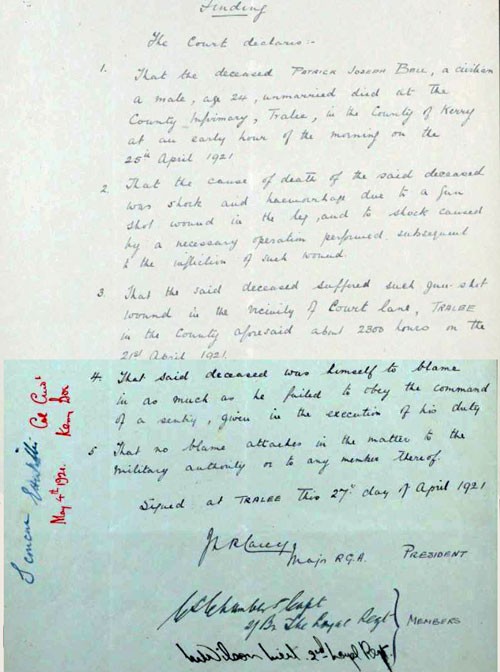 Finding
The Court declares:-
1. That the deceased PATRICK JOSEPH BALL, a civilian
a male, age 24, unmarried died at the
County Infirmary, Tralee, in the County of Kerry
at an early hour of the morning on the
25th April 1921
2. That the cause of death of the said deceased
was shock and haemorrhage due to a gun
shot wound in the leg, and to shock caused
by a necessary operation performed subsequent
to the infliction of such wound.
3. That the said deceased suffered such gun-shot
wound in the vicinity of Court Lane, TRALEE
in the County aforesaid about 2300 hours on the
21st April 1921.
4. That said deceased was himself to blame
in as much as he failed to obey the command
of a sentry, given in the execution of his duty
5 That no blame attaches in the matter to the
Military authority or to any member thereof.
Signed at TRALEE this 27th day of April 1921
Carey
Major R.G.A. PRESIDENT
Chambers Capt
The Loyal Regt
MEMBERS
Lieut. 2nd Loyal Regt.
I concur
Col
May 4th 1921.